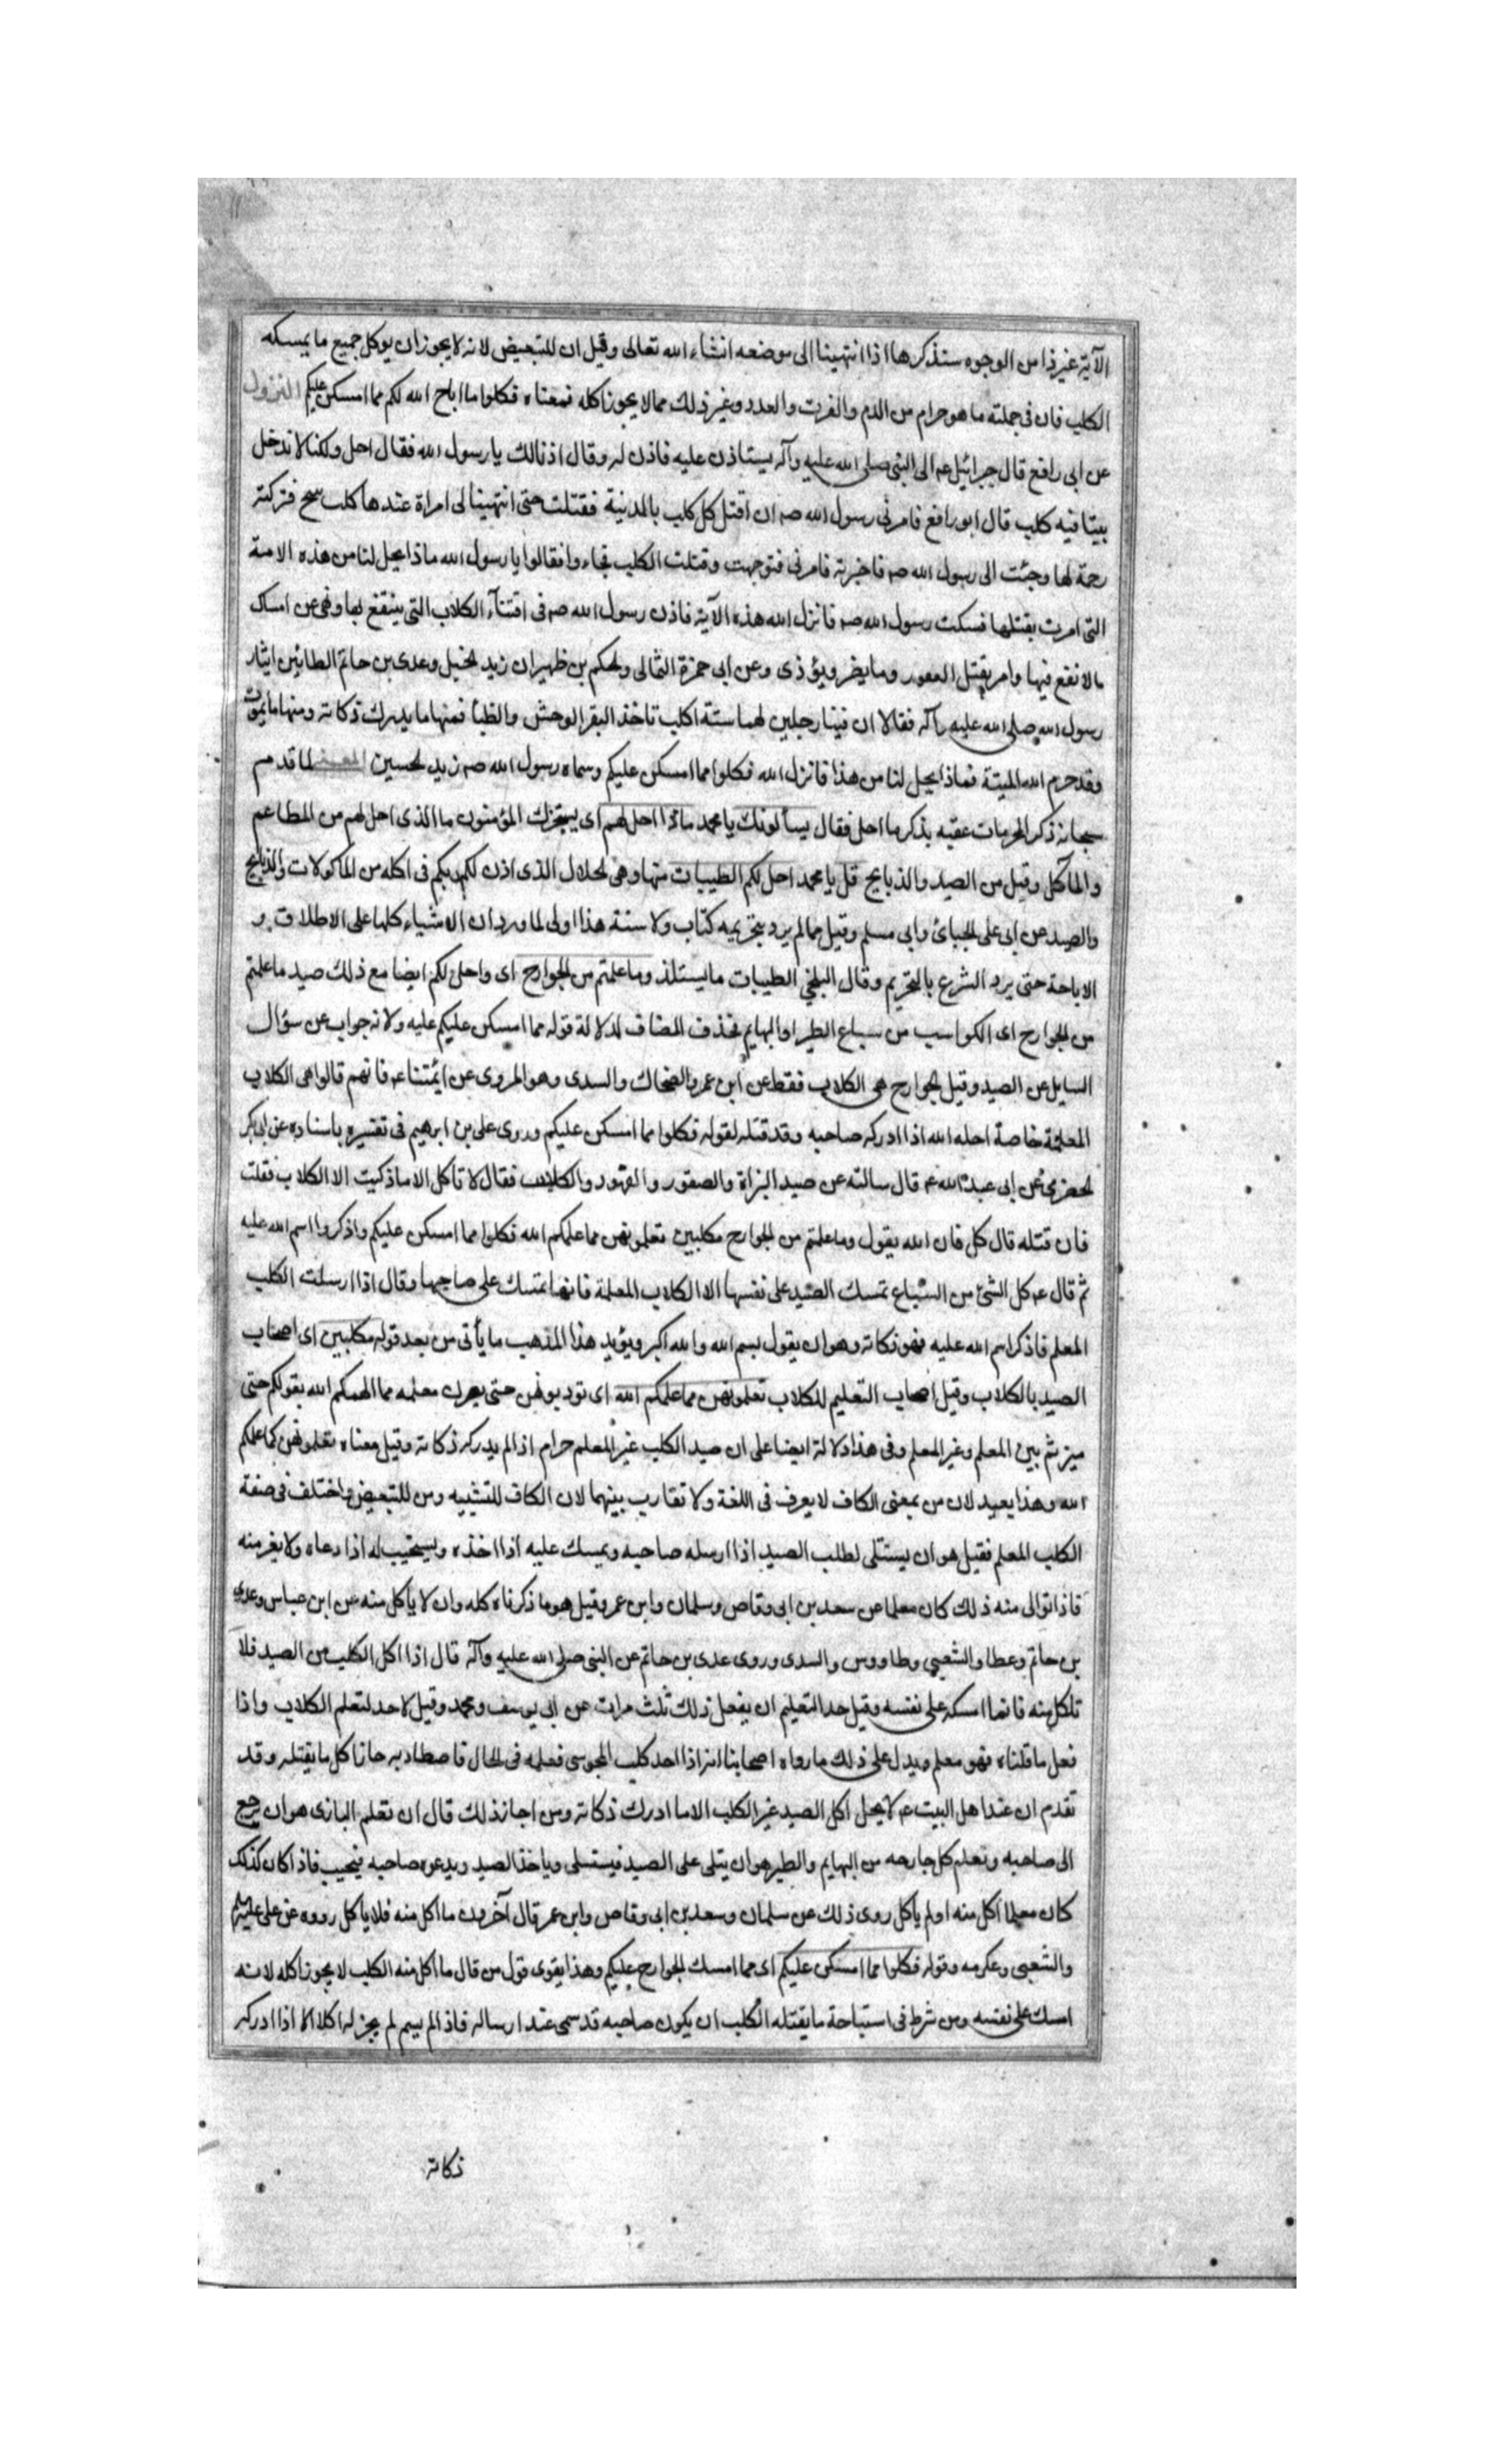 الآية غير ذا من الوجوه سنذكرها اذا انتهينا الى موضعه انشاء الله تعالى وقيل ان للتبعيض لانه لا يجوز ان يوكل جميع ما يمسكه
الكلب فان فى جملته ما هو حرام من الدم والفرث والعدد وغير ذلك مما لا يجوز اكله فمعناه فكلوا ما اباح الله لكم مما امسكن عليكم النزول
عن ابى رافع قال جبرائيل عم الى النبى صلى الله عليه وآله يستاذن عليه فاذن له وقال اذنا لك يا رسول الله فقال اجل ولكنا لا ندخل
بيتا فيه كلب قال ابو رافع فامرنى رسول الله صه ان اقتل كل كلب بالمدنية فقتلت حتى انتهينا لى امراة عندها كلب ينبح فتركته
رحمة لها وجئت الى رسول الله صه فاخبرته فامرنى فتوجهت وقتلت الكلب فجاءوا فقالوا يا رسول الله ماذا يحل لنا من هذه الامة
التى امرت بقتلها فسكت رسول الله صه فانزل الله هذه الآية فاذن رسول الله صه فى اقتناء الكلاب التى ينتفع بها ونهى عن امساك
ما لا نفع فيها وامر بقتل العقور وما يضر ويؤذى وعن ابى حمزة الثمالى والحكم بن ظهير ان زيد الخيل وعدى بن حاتم الطائيين ايثار
رسول الله صلى الله عليه وآله فقالا ان فينا رجلين لهما ستة اكلب تاخذ البقر الوحش والظبا فمنها ما يدرك ذكاته ومنها ما يموت
وقد حرم الله الميتة فماذا يحل لنا من هذا فانزل الله فكلوا مما امسكن عليكم وسماه رسول الله صه زيد لحسين المعنى لما قدم
سبحانه ذكر المحرمات عقبه بذكر ما احل فقال يسألونك يا محمد ماذا احل لهم اى يستخبرك المؤمنون ما الذى احل لهم من المطاعم
والمأكل وقيل من الصيد والذبايح قل يا محمد احل لكم الطيبات منها وهى الحلال الذى اذن لكم ربكم فى اكله من الماكولات والذبايح
والصيد عن ابى على الجبائى وابى مسلم وقيل مما لم يرد بتحريمه كتاب ولا سنة هذا اولى لما ورد ان الاشياء كلها على الاطلاق و
الاباحة حتى يرد الشرع بالتحريم وقال البلخي الطيبات ما يستلذ وما علمتم من الجوارح اى واحل لكم ايضا مع ذلك صيد ما علمتم
من الجوارح اى الكواسب من سباع الطير والبهايم فحذف المضاف لدلالة قوله مما امسكن عليكم عليه ولانه جواب عن سؤال
السايل عن الصيد وقيل الجوارح هى الكلاب فقط عن ابن عمر والضحاك والسدى وهو المروى عن ائمتنا عم فانهم قالوا هى الكلاب
المعلمة خاصة احله الله اذا ادركه صاحبه وقد قتله لقوله فكلوا مما امسكن عليكم وروى على بن ابرهيم فى تفسيره باسناده عن ابى بكر
الحضرمى عن ابى عبد الله عم قال سالته عن صيد البزاة والصقور والفهود والكلاب فقال لا تاكل الا ما ذكيت الا الكلاب فقلت
فان قتله قال كل فان الله يقول وما علمتم من الجوارح مكلبين تعلمونهن مما علمكم الله فكلوا مما امسكن عليكم واذكروا اسم الله عليه
ثم قال عم كل الشئ من السباع تمسك الصيد على نفسها الا الكلاب المعلمة فانها تمسك على صاحبها وقال اذا ارسلت الكلب
المعلم فاذكر اسم الله عليه فهو ذكاته وهو ان يقول بسم الله والله اكبر ويؤيد هذا المذهب ما يأتى من بعد قوله مكلبين اى اصحاب
الصيد بالكلاب وقيل اصحاب التعليم للكلاب تعلمونهن مما علمكم الله اى تودبونهن حتى يصرن معلمه مما الهمكم الله بقولكم حتى
ميزتم بين المعلم وغير المعلم وفى هذا دلالة ايضا على ان صيد الكلب غير المعلم حرام اذا لم يدركه ذكاته وقيل معناه تعلمونهن كما علمكم
الله وهذا بعيد لان من بمعنى الكاف لا يعرف فى اللغة ولا تقارب بينهما لان الكاف للتشبيه ومن للتبعيض واختلف فى صفة
الكلب المعلم فقيل هو ان يستشلى لطلب الصيد اذا ارسله صاحبه ويمسك عليه اذا اخذه ويستجيب له اذا دعاه ولا يفر منه
فاذا توالى منه ذلك كان معلما عن سعد بن ابى وقاص وسلمان وابن عمر وقيل هو ما ذكرناه كله وان لا يأكل منه عن ابن عباس وعدى
بن حاتم وعطا والشعبى وطاووس والسدى وروى عدى بن حاتم عن النبى صلى الله عليه وآله قال اذا اكل الكلب من الصيد فلا
تاكل منه فانما امسكه على نفسه وقيل حد التعليم ان يفعل ذلك ثلث مرات عن ابى يوسف ومحمد وقيل لا حد لتعلم الكلاب واذا
فعل ما قلناه فهو معلم ويدل على ذلك ما رواه اصحابنا انه اذا احد كلب المجوسى فعلمه فى الحال فاصطاد به جاز اكل ما يقتله وقد
تقدم ان عند اهل البيت عم لا يحل اكل الصيد غير الكلب الا ما ادرك ذكاته ومن اجاز ذلك قال ان تعلم البازى هو ان يرجع
الى صاحبه وتعلم كل جارحه من البهايم والطير هو ان يتلى على الصيد فيستسلى وياخذ الصيد ويدعوه صاحبه فيجيب فاذا كان كذلك
كان معلما اكل منه او لم ياكل روى ذلك عن سلمان وسعد بن ابى وقاص وابن عمر قال آخرون ما اكل منه فلا ياكل رووه عن على عليه السلم
والشعبى وعكرمه وقوله فكلوا مما امسكن عليكم اى مما امسك الجوارح عليكم وهذا يقوى قول من قال ما اكل منه الكلب لا يجوز اكله لانه
امسك على نفسه ومن شرط فى استباحة ما يقتله الكلب ان يكون صاحبه قد سمى عند ارساله فاذا لم يسم لم يجز له اكلا الا اذا ادركه
ذكاته